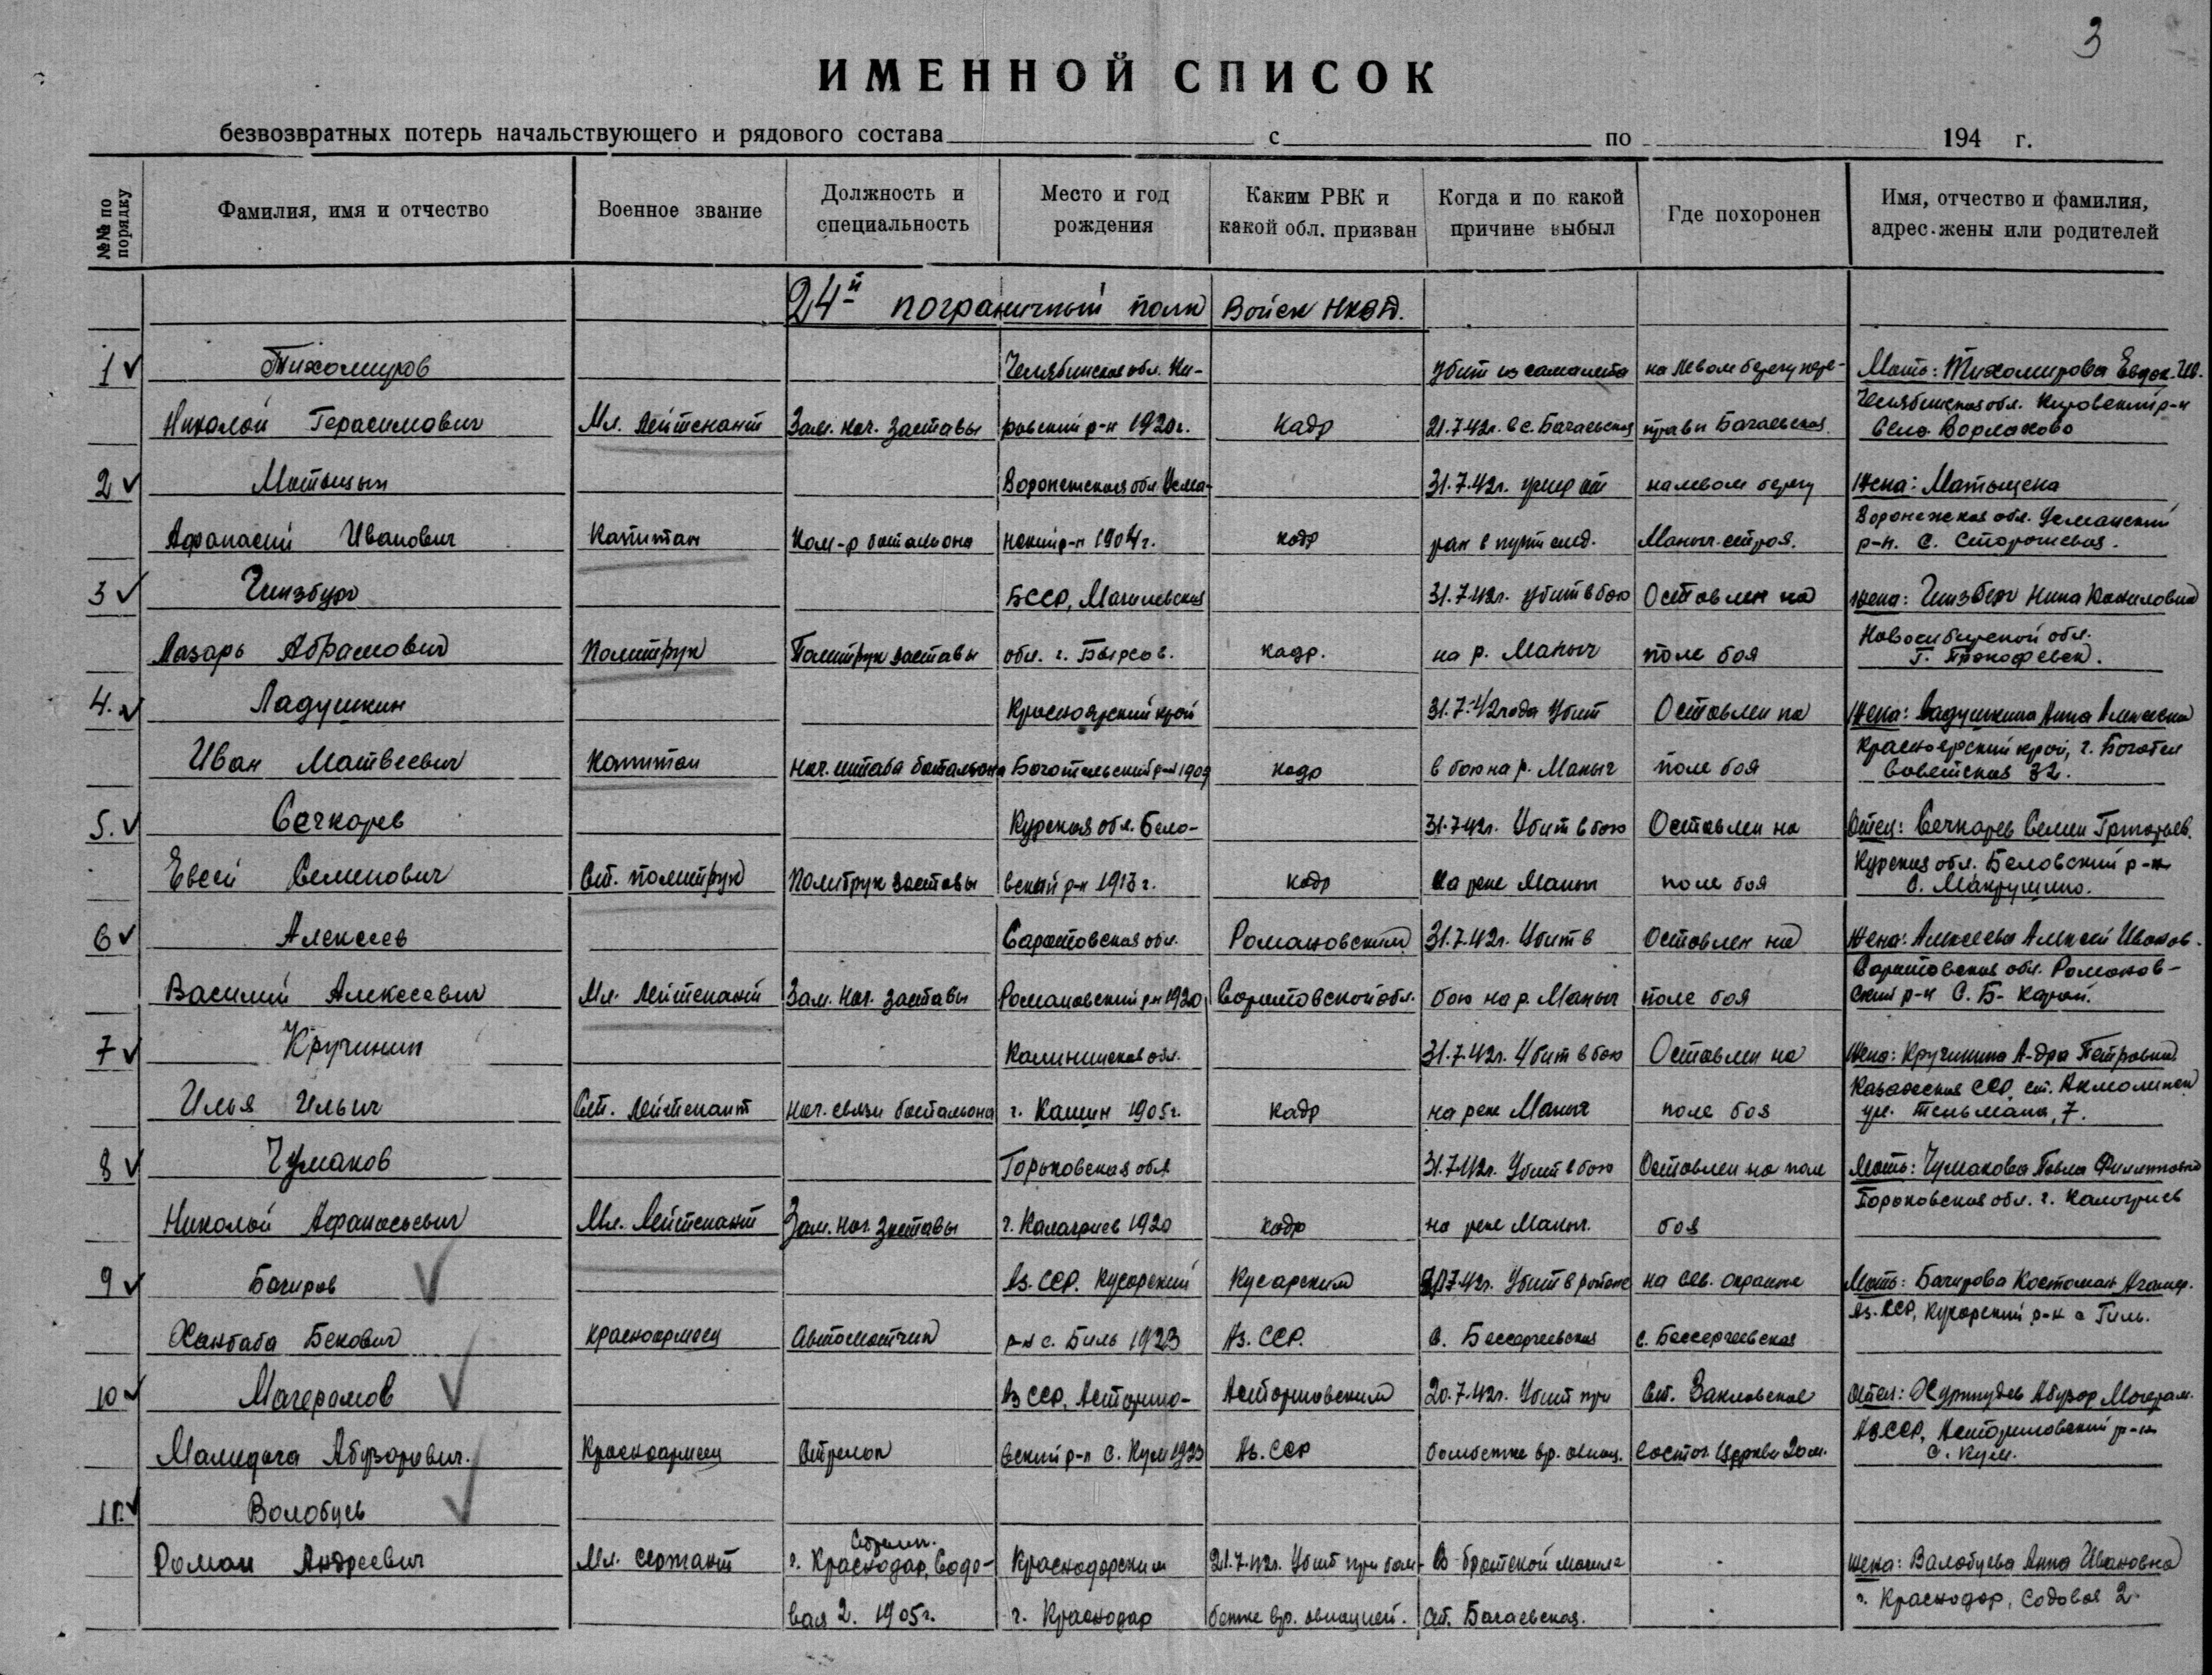 3
ИМЕННОЙ СПИСОК
безвозвратных потерь начальствующего и рядового состава с по 194 г.
№№ по порядку
Фамилия, имя и отчество
Военное звание
Должность и специальность
Место и год рождения
Каким РВК и какой обл. призван
Когда и по какой причине выбыл
Где похоронен
Имя, отчество и фамилия, адрес жены или родителей
24й пограничный полк Войск НКВД.
1 Тихомиров Челябинская обл. Ки- убит из самолета на левом берегу пере- Мать: Тихомирова Евдок. Ив.
Николай Герасимович Мл. лейтенант Зам. нач. заставы ровский р-н 1920г. кадр 21.7.42г. в с. Багаевская правы Багаевская. Челябинская обл. Кировский р-н
село Ворлаково
2 Матыцын Воронежская обл. Усма- 31.7.42г. умер от на левом берегу Жена: Матыцена
Афанасий Иванович Капитан Ком-р батальона нский р-н 1904г. кадр ран в пути след. Маныч. строя. Воронежская обл. Усманский
р-н. С. Сторожевая.
3 Гинзбург БССР, Магилевская 31.7.42г. убит в бою Оставлен на жена: Гинзберг Нина
Лазарь Абрамович Политрук Политрук заставы обл. г. кадр. на р. Маныч поле боя Новосибирской обл.
г. Прокофевск.
4. Ладушкин Красноярский край 31.7.42 года убит Оставлен на Жена: Ладушкина Анна Алексеевна
Иван Матвеевич Капитан нач. штаба батальона Боготольский р-н 1909 кадр в бою на р. Маныч поле боя Красноярский край, г. Боготол
Советская 32.
5. Сечкарев Курская обл. Бело- 31.7.42г. Убит в бою Оставлен на Отец: Сечкарев Семен Григорьев.
Евсей Семенович Ст. политрук Политрук заставы вский р-н 1913г. кадр На реке Маныч поле боя Курская обл. Беловский р-н
С. Макрушино.
6 Алексеев Саратовская обл. Романовским 31.7.42г. Убит в Оставлен на Жена: Алексеева Алексей Иванов.
Василий Алексеевич Мл. лейтенант Зам. нач. заставы Романовский р-н 1920 Саратовской обл. бою на р. Маныч поле боя Саратовская обл. Романов-
ский р-н С. Б- Карай.
7 Кручинин Калининская обл. 31.7.42г. Убит в бою Оставлен на Жена: Кручинина А-дра Петровна
Илья Ильич Ст. лейтенант нач. связи батальона г. Кашин 1905г. кадр на реке Маныч поле боя Казахская ССР, ст. Акмолинск
ул. Тельмана, 7.
8 Чумаков Горьковская обл 31.7.42г. Убит в бою Оставлен на поле Мать: Чумакова Павла Филипповна
Николай Афанасьевич Мл. Лейтенант Зам. нач. заставы г. Калагриев 1920 кадр на реке Маныч. боя Горьковская обл. г. Калогриев
9 Багиров Аз. ССР. Кусарский Кусарским 7.42г. Убит в районе на сев. окраине Мать: Багирова
Ханбаба Бекович красноармеец Автоматчик р-н с. Биль 1923 Аз. ССР. С. Бессергеевская с. Бессергеевская Аз. ССР, Кусарский р-н с Гиль.
10 Магерамов Аз ССР, Астарино- Астариновский 20.7.42г. Убит при ст. Заплавское Отец:
Мамедага Абузарович. Красноармеец Стрелок вский р-н С. Кум 1923 Аз. ССР бомбежке вр. авиац. восточ. церкви 20м. Аз ССР, Астариновский р-н
С. Кум.
11. Волобуев
Роман Андреевич Мл. сержант Стрелк. г. Краснодар, Садо- Краснодарским 21.7.42г. Убит при бом- В братской могиле жена: Валобуева Анна Ивановна
вая 2. 1905г. г. Краснодар бежке вр. авиацией. ст. Багаевская. г. Краснодар, Садовая 2.